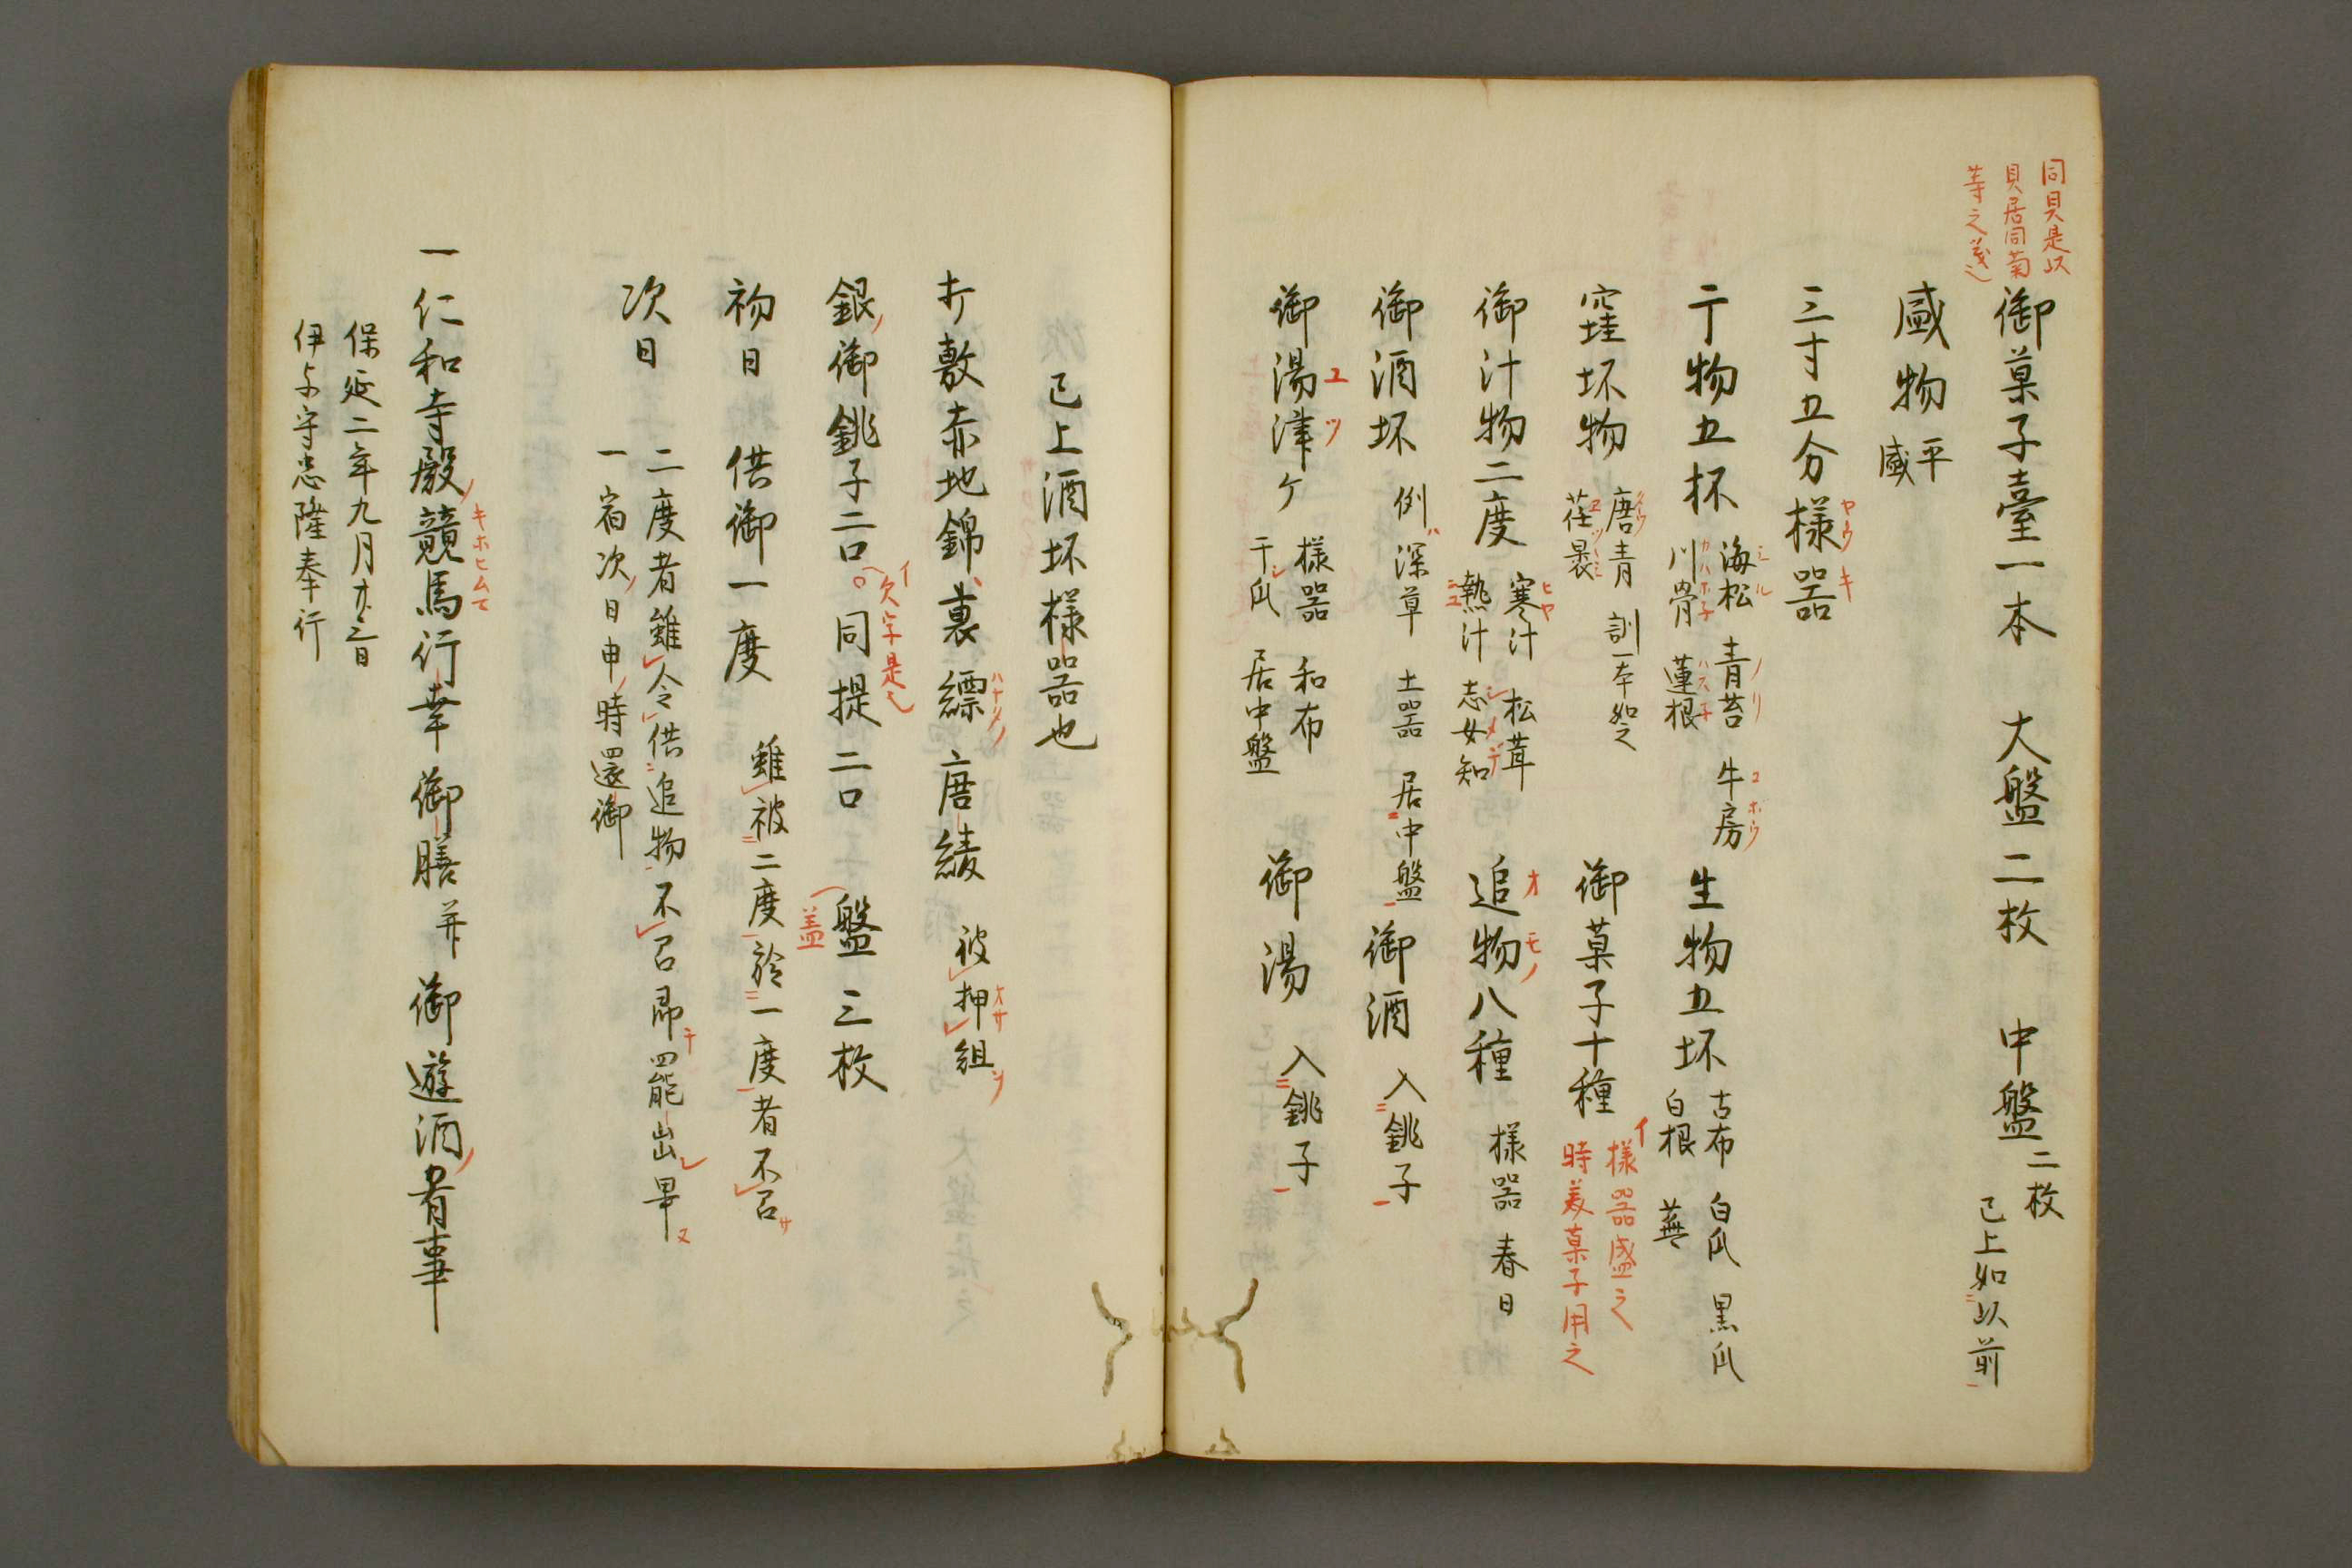 同貝是以
貝居同菊
等之義也
御菓子臺一本 大盤二枚 中盤二枚 已上如以前
盛物 平盛
三寸五分様器 ヤウキ
干物五杯 海松 青苔 牛房 川骨 蓮根 生物五坏 古布 白瓜 黒瓜 白根 蕪
窪坏物 唐青 訓本如之 荏裹 御菓子十種 イ様器盛之 時美菓子用之
御汁物二度 寒汁 松茸 熱汁 志女知 追物八種 様器 春日
御酒坏 例深草 土器 居中盤 御酒 入銚子
御湯津ケ 様器 和布 干瓜 居中盤 御湯 入銚子
已上酒坏様器也
折敷赤地錦裏縹唐綾 被押組
銀御銚子二口 イ欠字是也 同提二口 盤三枚 盖
初日 供御一度 雖被二度於一度者不召
次日 二度者雖令供追物不召即罷出畢
一宿次日申時還御
一仁和寺殿競馬行幸御膳并御遊酒肴事 キホヒムマ
保延二年九月廿三日
伊与守忠隆奉行